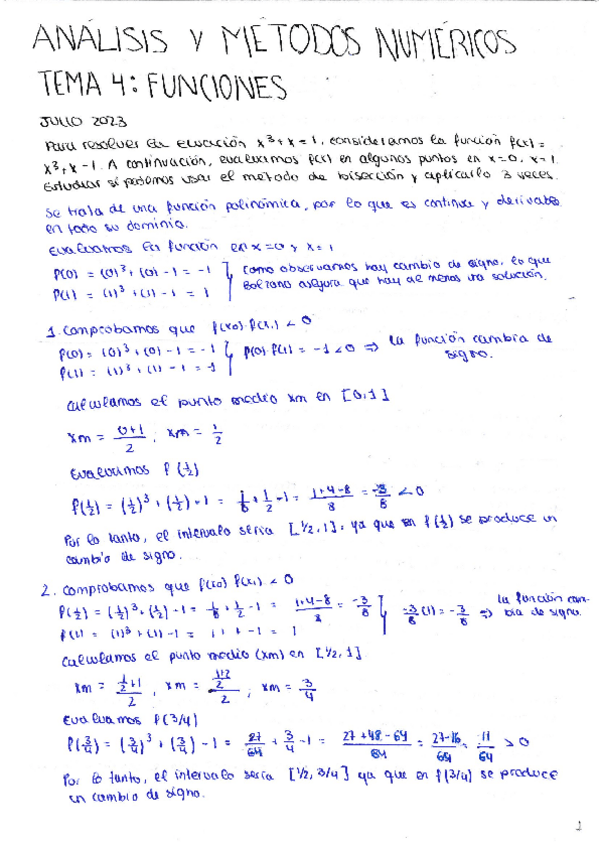 ANÁLISIS Y MÉTODOS NUMÉRICOS
TEMA 4: FUNCIONES
JULIO 2023
Para resolver la ecuación x³+x=1, consideramos la función f(x)=
x³+x-1. A continuación, evaluamos f(x) en algunos puntos en x=0, x=1.
Estudiar si podemos usar el método de bisección y aplicarlo 3 veces.
Se trata de una función polinómica, por lo que es continua y derivable
en todo su dominio.
Evaluamos la función en x=0 y x=1
f(0) = (0)³+(0)-1 = -1 } como observamos hay cambio de signo, lo que
f(1) = (1)³+(1)-1 = 1 Bolzano asegura que hay al menos una solución.
1. Comprobamos que f(x0)·f(x1) < 0
f(0) = (0)³+(0)-1 = -1 } f(0)·f(1) = -1 < 0 ⇒ la función cambia de
f(1) = (1)³+(1)-1 = 1 signo.
Calculamos el punto medio xm en [0,1]
xm = (0+1)/2 ; xm = 1/2
Evaluamos f(1/2)
f(1/2) = (1/2)³+(1/2)-1 = 1/8 + 1/2 -1 = (1+4-8)/8 = -3/8 < 0
Por lo tanto, el intervalo sería [1/2,1], ya que en f(1/2) se produce un
cambio de signo.
2. Comprobamos que f(x0) f(x1) < 0
f(1/2) = (1/2)³+(1/2)-1 = 1/8 + 1/2 -1 = (1+4-8)/8 = -3/8 } -3/8 (1) = -3/8 ⇒ la función cam-
f(1) = (1)³+(1)-1 = 1+1-1 = 1 bia de signo.
Calculamos el punto medio (xm) en [1/2,1]
xm = (1/2+1)/2 , xm = ((1+2)/2)/2 ; xm = 3/4
Evaluamos f(3/4)
f(3/4) = (3/4)³+(3/4)-1 = 27/64 + 3/4 -1 = (27+48-64)/64 = (27-16)/64 = 11/64 > 0
Por lo tanto, el intervalo sería [1/2, 3/4] ya que en f(3/4) se produce
un cambio de signo.
1